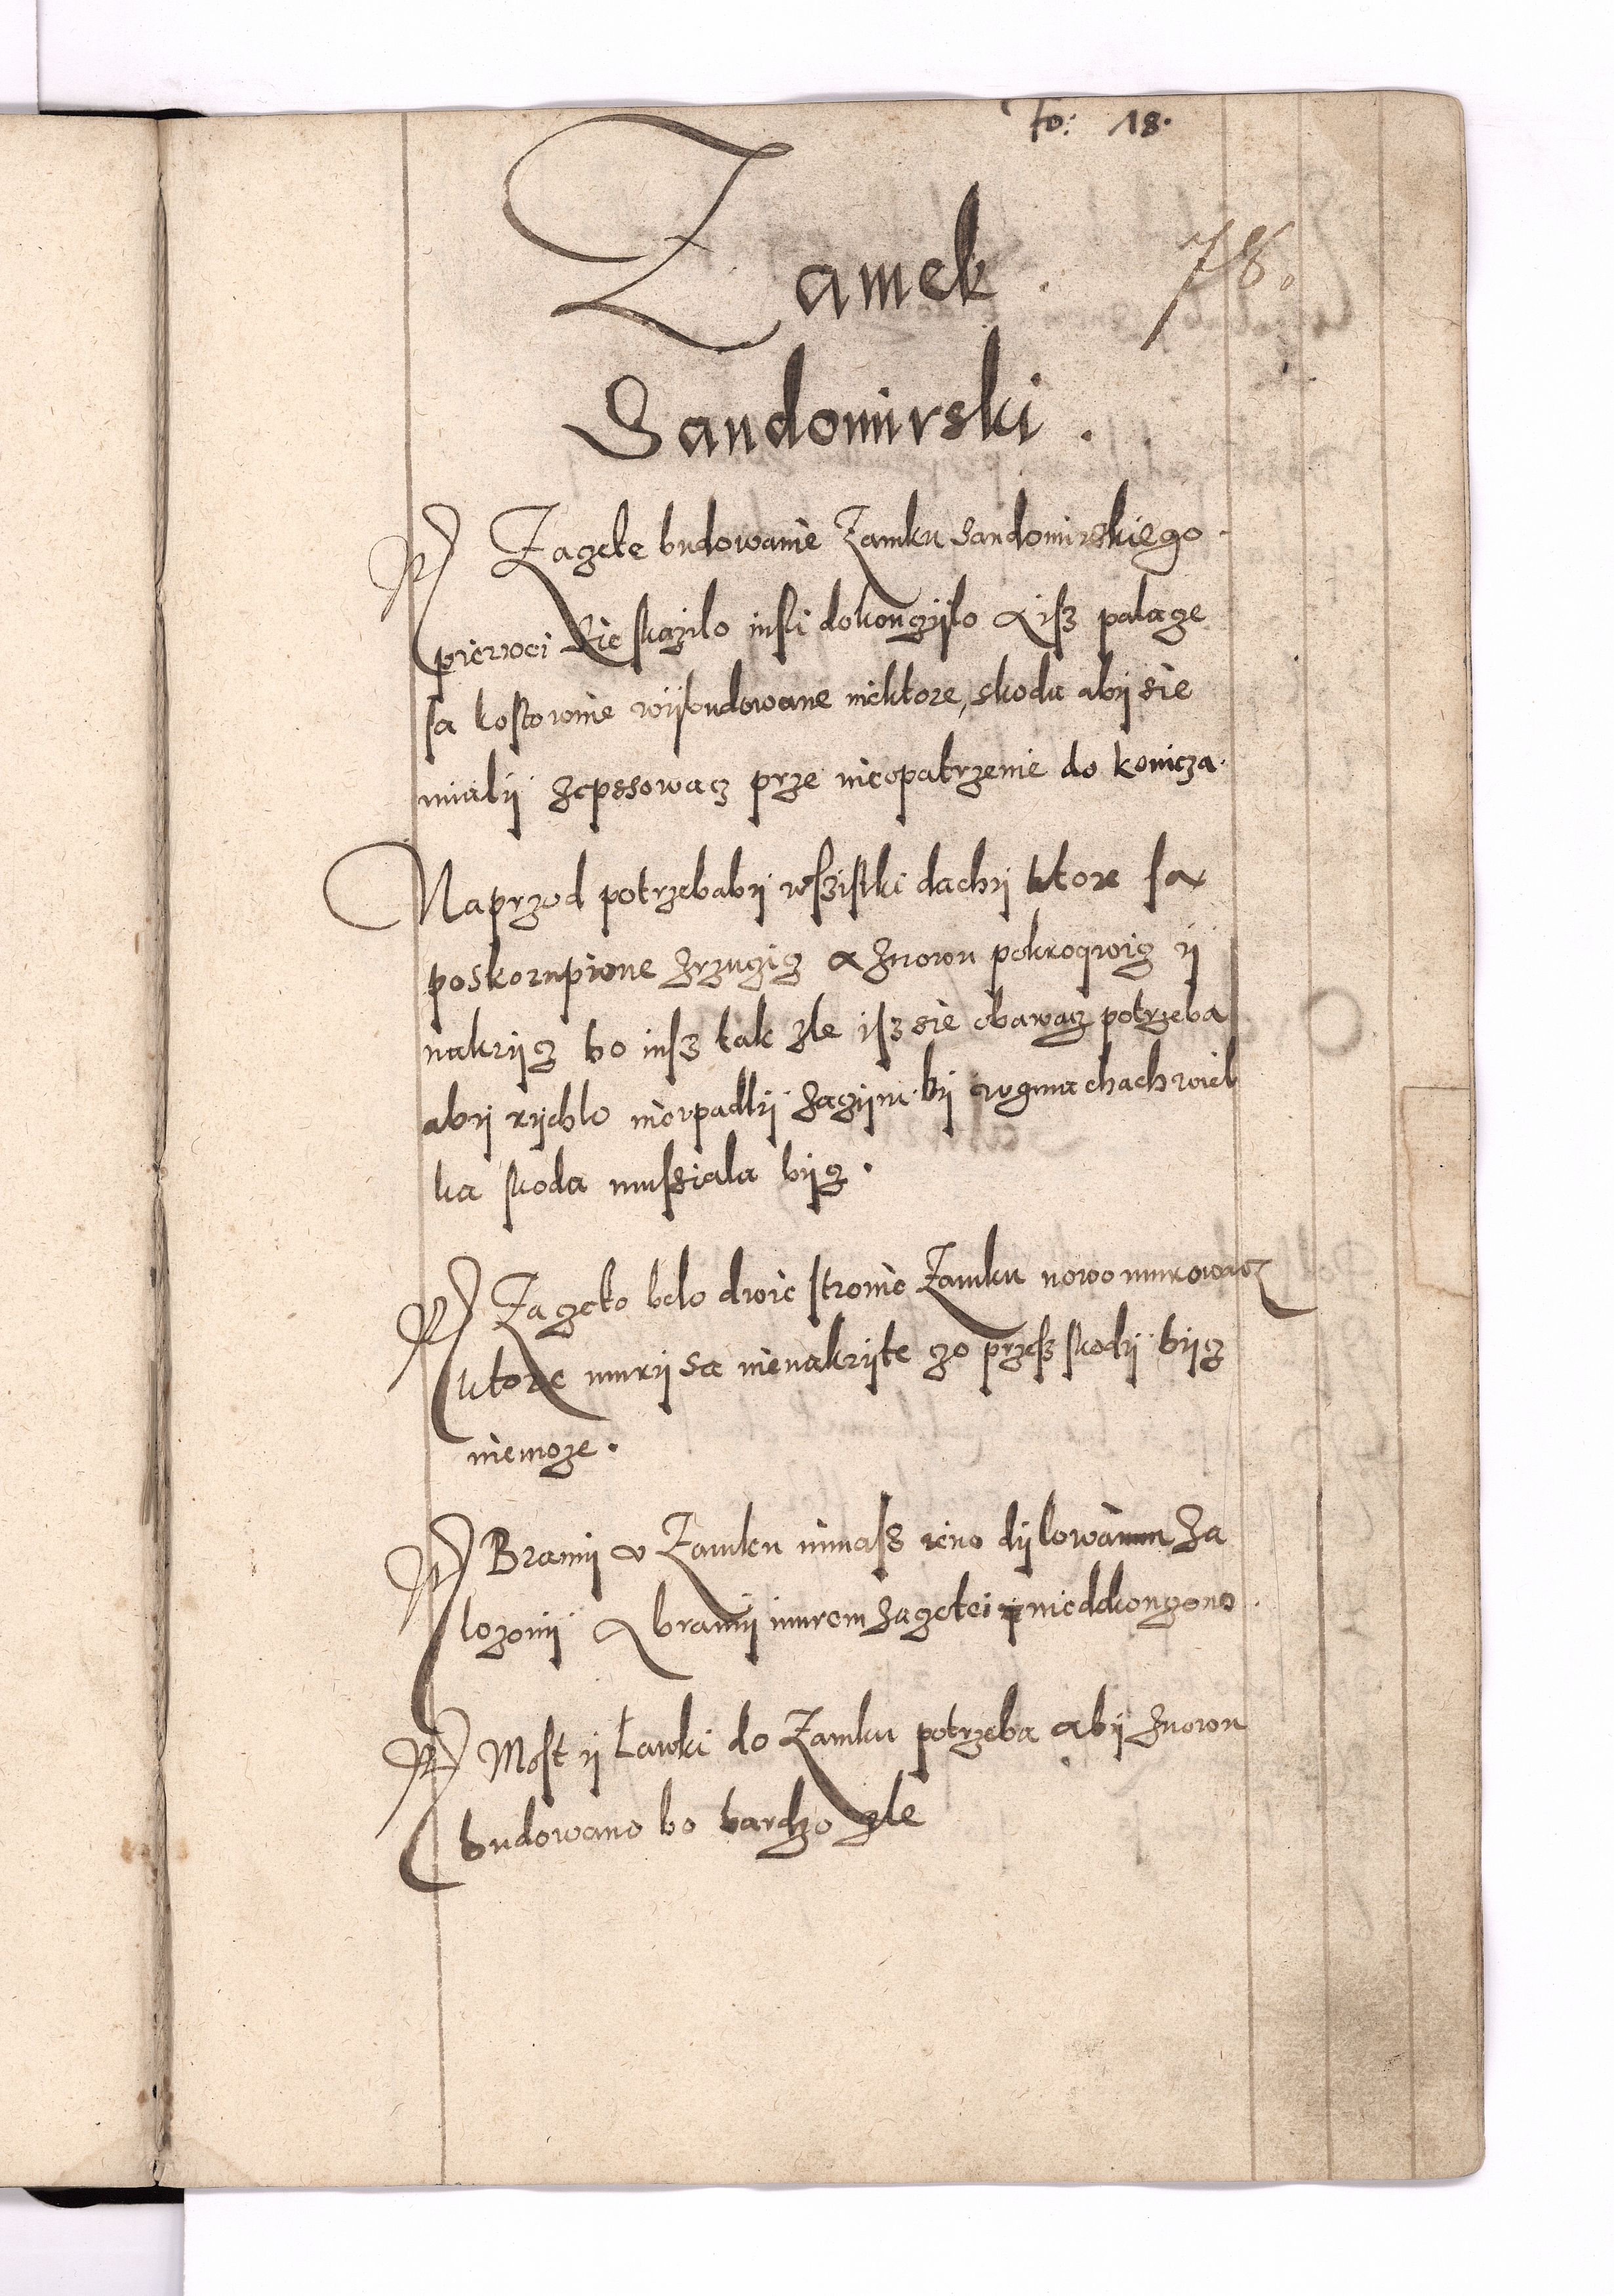 Fo: 18.
Zamek.
78.
Sandomirski.
Zagete budowanie Zamku Sandomirskiego
pierwei sie skazilo insli dokonczijlo A isz palace
sa kostownie wijbudowane niektore, skoda abij sie
mialij zepssowacz prze nieopatrzenie do konicza.
Naprzod potrzebabij wszistki dachij ktore sa
poskorupione zrzuczicz a znowu pokroqwicz ij
nakrijcz bo insz tak zle isz sie obawacz potrzeba
abij rijchlo nieopadlij zaczijm bij w gmachach wiel
ka skoda mussiala bijcz.
Zageto belo dwie stronie Zamku nowo murowacz
ktore murij sa nienakrijte czo przesz skodij bijcz
niemoze.
Bramij v Zamku nimass ieno dijlowanim za
lozonij A bramij murem zagetei niedokonczono.
Most ij Ławki do Zamku potrzeba abij znowu
budowano bo bardzo zle